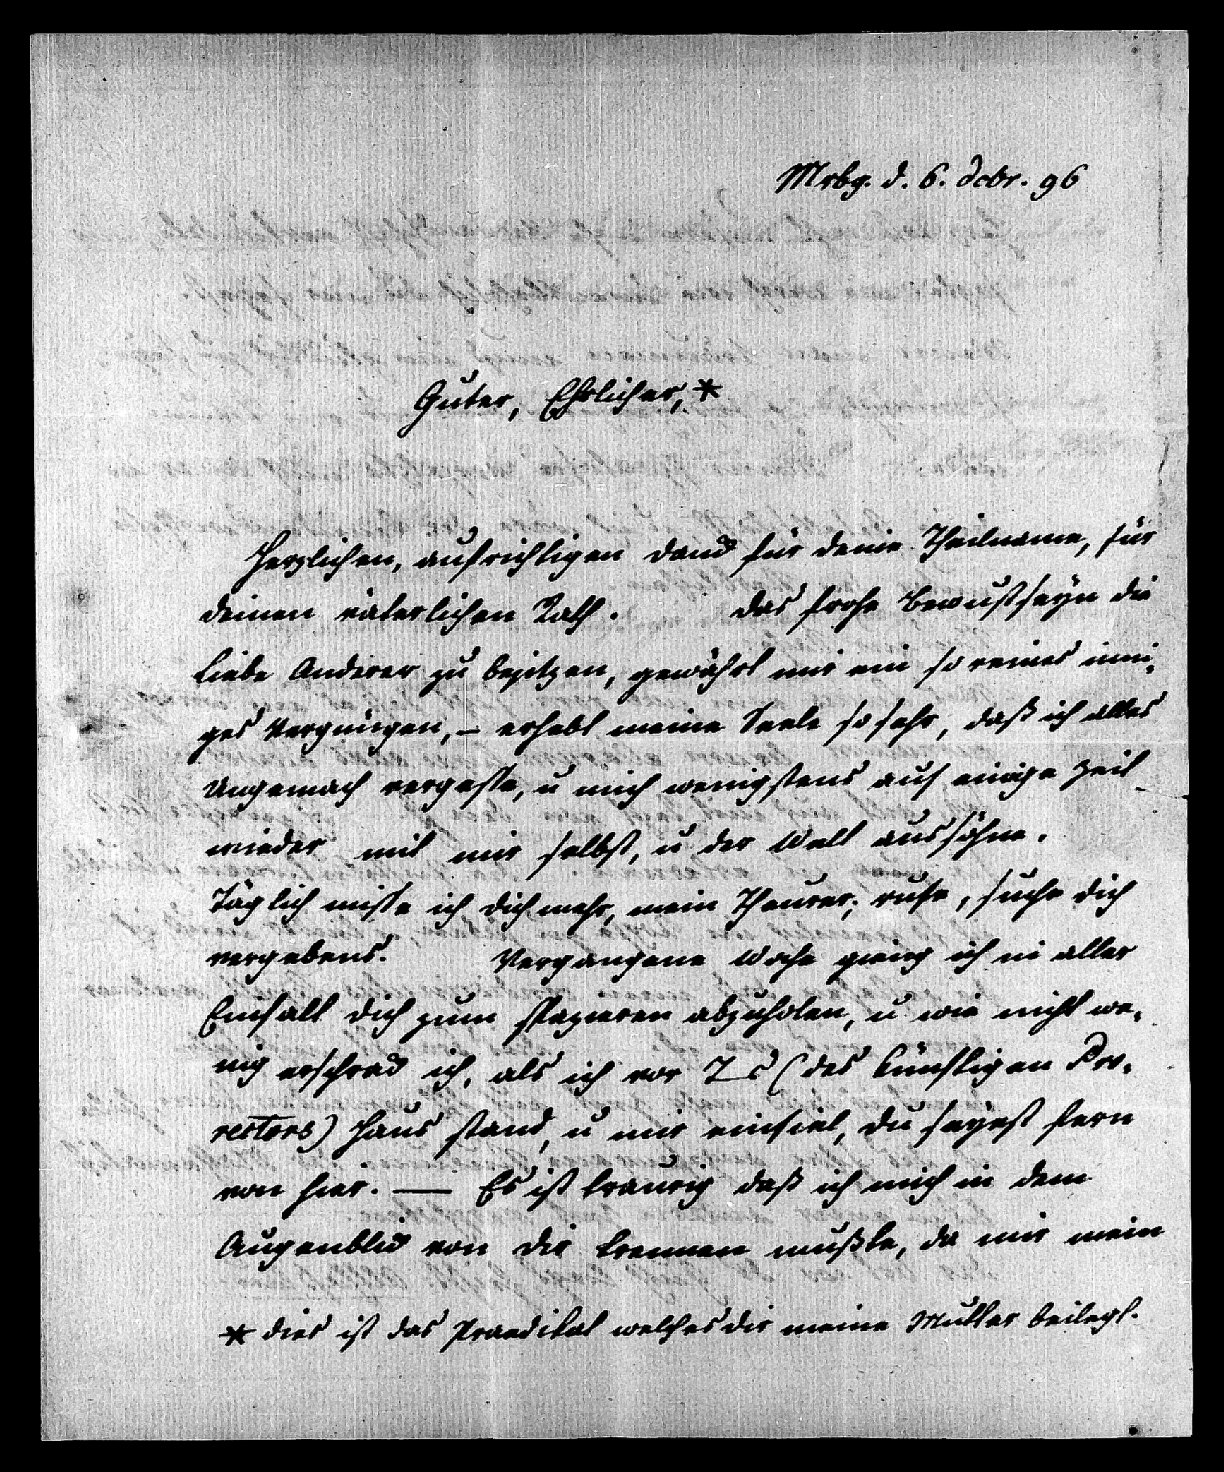 Mrbg. d. 6. Octbr. 96
Guter, Ehrlicher, *
Herzlichen, aufrichtigen Dank für deine Theilname, für
deinen väterlichen Rath. Das frohe Bewustseyn die
Liebe Anderer zu besitzen, gewährt mir ein so reines inni-
ges Vergnügen, – erhebt meine Seele so sehr, daß ich alles
Ungemach vergesse, u mich wenigstens auf einige Zeit
wieder mit mir selbst, u der Welt aussöhne.
Täglich misse ich dich mehr, mein Theurer; rufe, suche dich
vergebens. Vergangene Woche gieng ich in aller
Einfalt dich zum Spazieren abzuholen, u wie nicht we-
nig erschrak ich, als ich vor L–s (des künftigen Pro-
rectors) Haus stand, u mir einfiel, du seyest fern
von hier. — Es ist traurig daß ich mich in dem
Augenblik von dir trennen mußte, da mir mein
* dies ist das Praedikat welches dir meine Mutter beilegt.